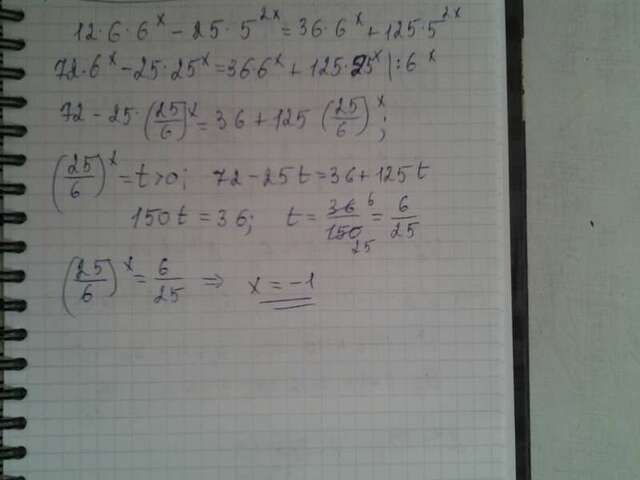 12·6·6^x − 25·5^2x = 36·6^x + 125·5^2x
72·6^x − 25·25^x = 36 6^x + 125·25^x | : 6^x
72 − 25·(25/6)^x = 36 + 125 (25/6)^x ;
(25/6)^x = t > 0; 72 − 25t = 36 + 125t
150t = 36; t = 36 6/150 25 = 6/25
(25/6)^x = 6/25 ⇒ x = −1